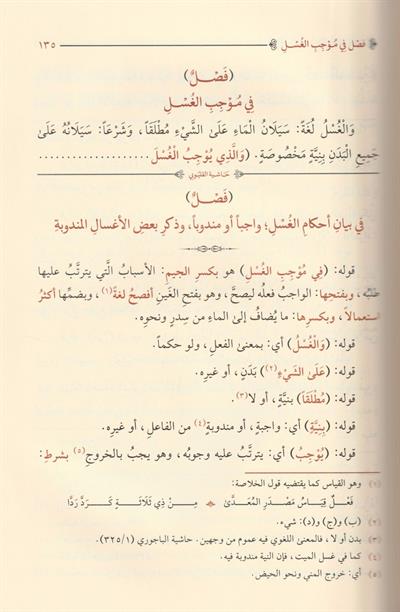 فصْل في مُوْجِبِ الغُسْلِ
١٣٥
(فَصْلٌ)
فِي مُوْجِبِ الغُسْلِ
وَالغُسْلُ لُغَةً: سَيَلَانُ المَاءِ عَلَىٰ الشَّيْءِ مُطْلَقَاً، وَشَرْعَاً: سَيَلَانُهُ عَلَىٰ
جَمِيعِ البَدَنِ بِنِيَّةٍ مَخْصُوصَةٍ. (وَالَّذِي يُوْجِبُ الغُسْلَ ....................
حاشية القليوبي
(فَصْلٌ)
في بيانِ أحكامِ الغُسْلِ؛ واجباً أو مندوباً، وذكرِ بعضِ الأغسالِ المندوبةِ
قوله: (فِي مُوْجِبِ الغُسْلِ) هو بكسرِ الجيمِ: الأسبابُ الَّتي يترتَّبُ عليها
طلبُه، وبفتحِها: الواجبُ فعلُه ليصحَّ، وهو بفتحِ الغَينِ أفصحُ لغةً(١)، وبضمِّها أكثرُ
استعمالاً، وبكسرِها: ما يُضافُ إلىٰ الماءِ من سِدرٍ ونحوِه.
قوله: (وَالغُسْلُ) أي: بمعنىٰ الفعلِ، ولو حكماً.
قوله: (عَلَىٰ الشَّيْءِ)(٢) بَدَنٍ، أو غيرِه.
قوله: (مُطْلَقَاً) بنيَّةٍ، أو لا(٣).
قوله: (بِنِيَّةٍ) أي: واجبةٍ، أو مندوبةٍ(٤) من الفاعلِ، أو غيرِه.
قوله: (يُوْجِبُ) أي: يترتَّبُ عليه وجوبُه، وهو يجبُ بالخروجِ(٥) بشرطِ:
(١) وهو القياس كما يقتضيه قول الخلاصة:
فَعْلٌ قِيَاسُ مَصْدَرِ المُعَدَّىٰ مِنْ ذِي ثَلَاثَةٍ كَرَدَّ رَدَّا
(٢) (ب) و(ج) و(د): شيء.
(٣) بدن أو لا، فالمعنىٰ اللغوي فيه عموم من وجهين. حاشية الباجوري (٣٢٥/١).
(٤) كما في غسل الميت، فإن النية مندوبة فيه.
(٥) أي: خروج المني ونحو الحيض.